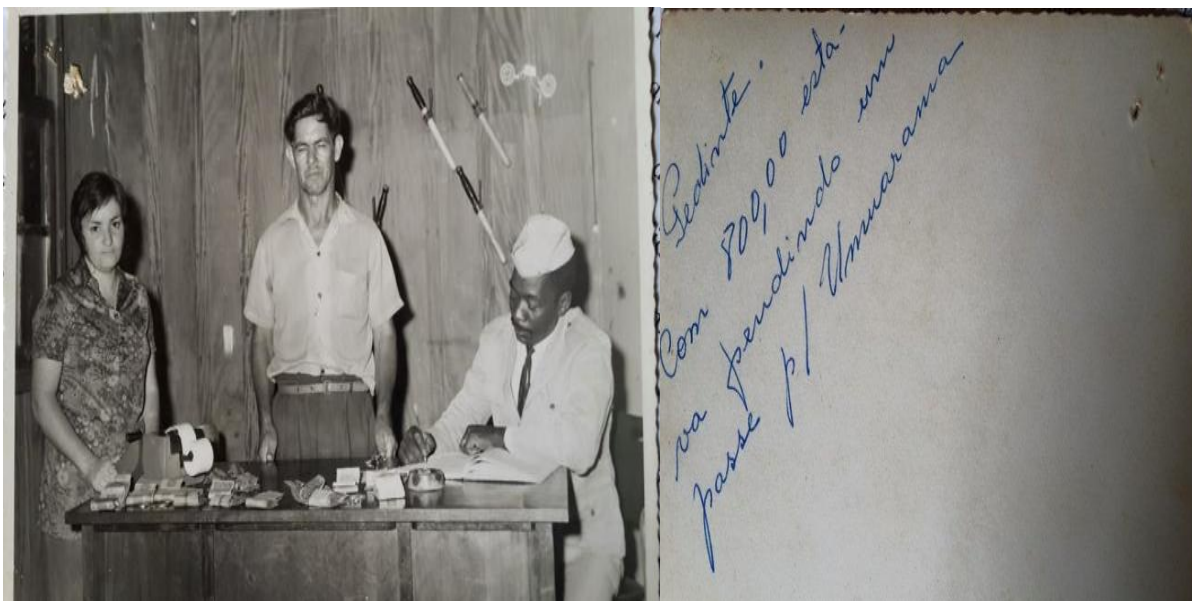 Pedinte.
Com 800,00 está-
va pendindo um
passe p/ Umuarama